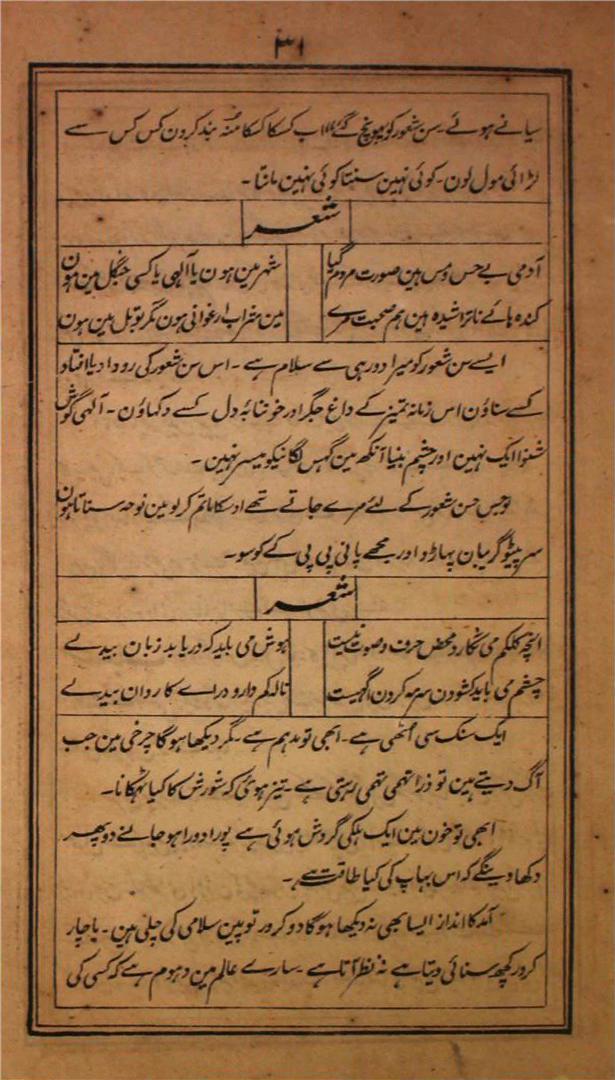 ۳۱
سیانے ہوئے۔ سن شعور کو پہونچ گئے اب کسکا کسکا منہ بند کردن کس کس سے
لڑائی مول لون۔ کوئی نہین سنتا کوئی نہین مانتا۔
شعر
آدمی بے حس ومس ہین صورت مردم گیا شہر مین ہون یا آلہی یا کسی جنگل مین ہون
کندہ ہائے ناتراشیدہ ہین ہم صحبت مرے مین شراب ارغوانی ہون مگر بوتل مین ہون
ایسے سن شعور کو میرا دور ہی سے سلام ہے۔ اس سن شعور کی روداد یا افتاد
کسے سناؤن اس زمانہ تمیز کے داغ جگر اور خوننابہ دل کسے دکھاؤن۔ آلہی گوش
شنوا ایک نہین اور چشم بنیا آنکھ مین گہس لگانیکو میسر نہین۔
لو جس حسن شعور کے لئے مرے جاتے تھے اوسکا ماتم کرلو مین نوحہ سناتا ہون
سر پیٹو گریبان پہاڑو اور مجھے پانی پی پی کے کوسو۔
شعر
انچہ کلکم می نگارد محض حرف وصوت نیست ہوش می باید کہ دریابد زبان بیدلے
چشم می باید کشودن سرمہ کردن اگہیست نالہ کم دارد دراے کاروان بیدلے
ایک سنک سی اُٹھی ہے۔ ابھی تو مدہم ہے۔ مگر دیکھا ہوگا چرخی مین جب
آگ دیتے ہین تو ذرا تھمی تھمی رہتی ہے۔ تیز ہوئی کہ شورش کا کیا ٹھکانا۔
ابھی تو خون مین ایک ہلکی گردش ہوئی ہے پورا دورا ہو جائے دو پھر
دکھا دینگے کہ اس بہاپ کی کیا طاقت ہے۔
آمد کا انداز ایسا بھی نہ دیکھا ہوگا دو کرور توپین سلامی کی چلی ہین۔ یا چار
کرور کچھ سنائی دیتا ہے نہ نظر آتا ہے۔ سارے عالم مین دہوم ہے کہ کسی کی